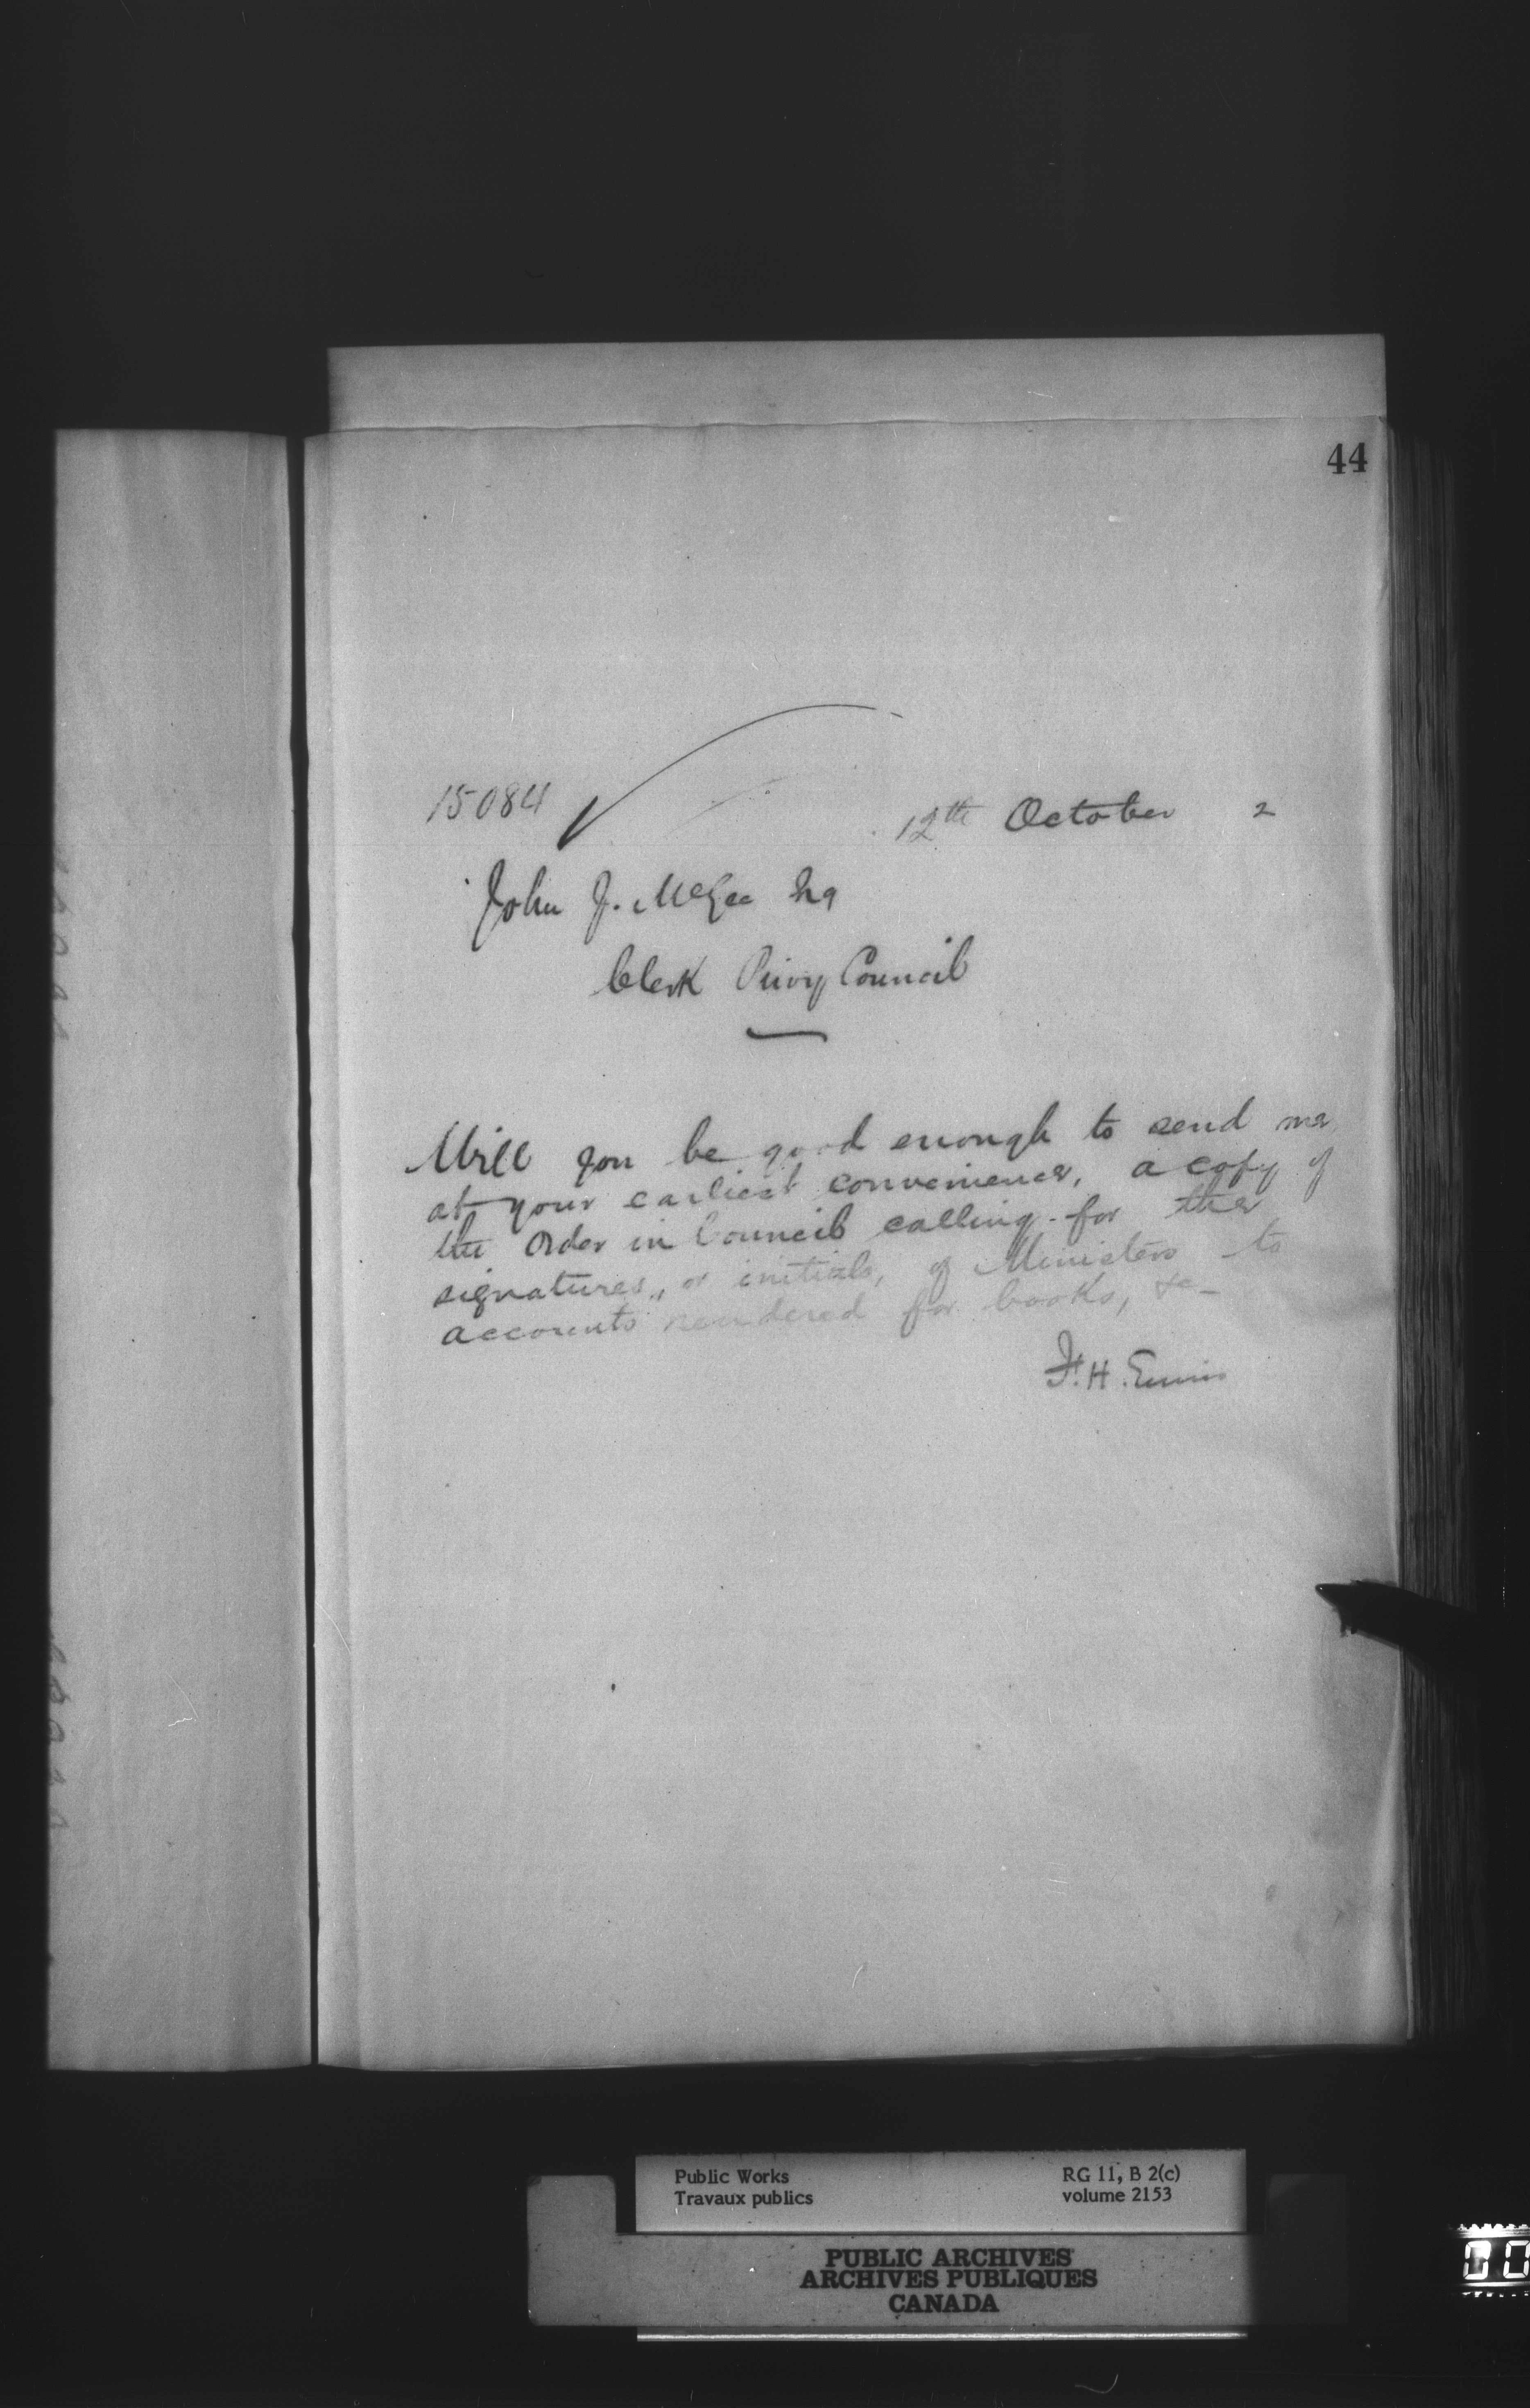 44
15084
12th October 2
John J. McGee Esq
Clerk Privy Council
Will you be good enough to send me
at your earliest convenience, a copy of
the Order in Council calling for the
signatures, or initials, of Ministers to
accounts rendered for books, &c
F. H. Ennis
Public Works
Travaux publics
RG 11, B 2(c)
volume 2153
PUBLIC ARCHIVES
ARCHIVES PUBLIQUES
CANADA